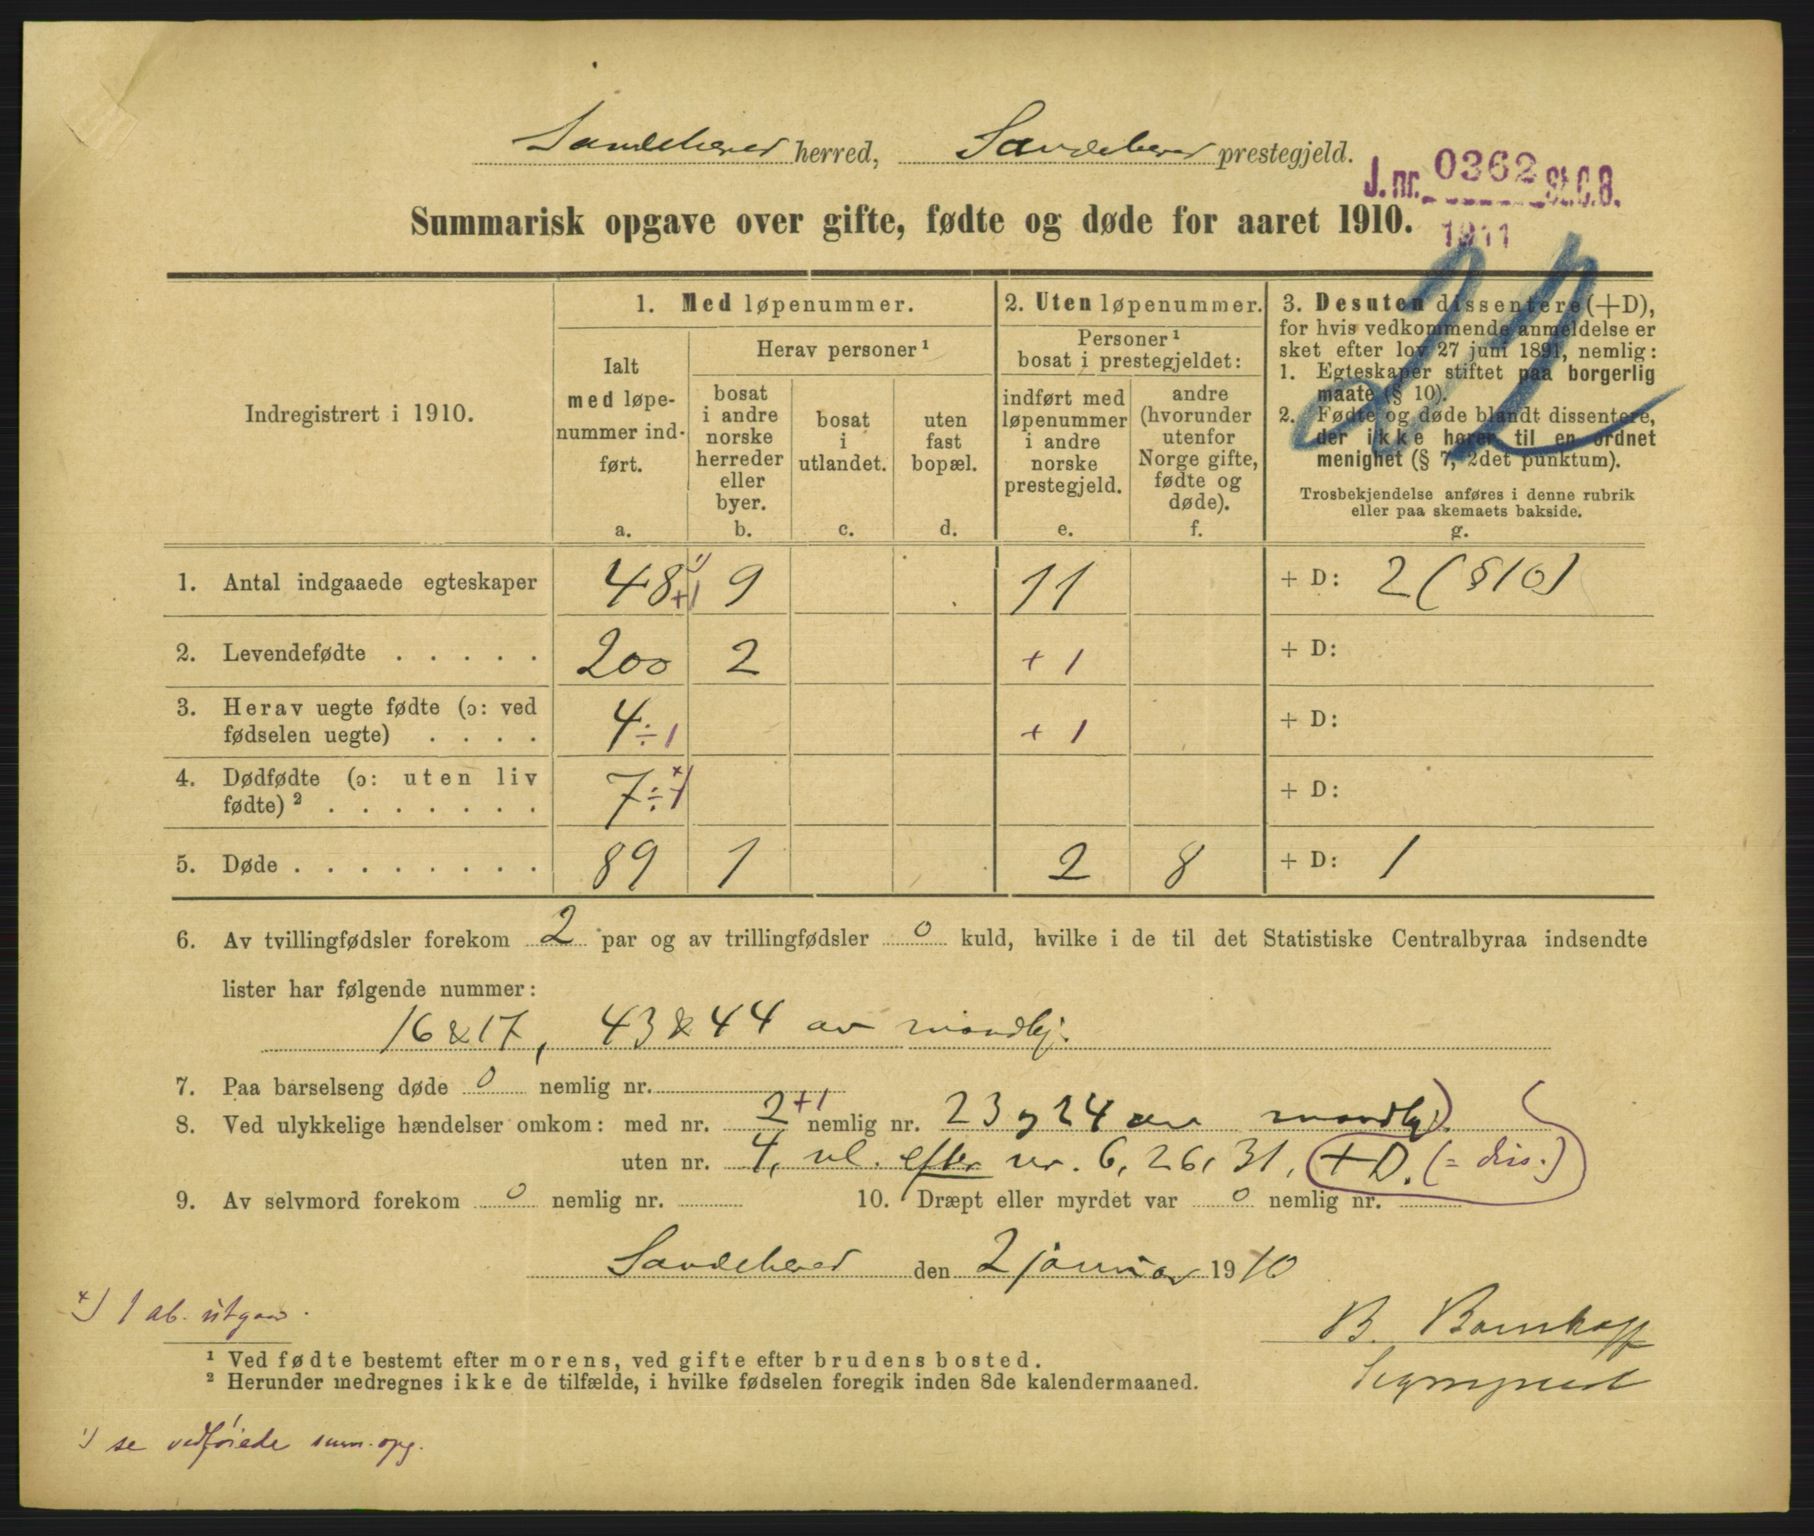 Sandeherred herred, Sandeherred prestegjeld.
J. nr. 0362 St.C.B.
1911
Summarisk opgave over gifte, fødte og døde for aaret 1910.
22
Indregistrert i 1910.
1. Med løpenummer.
Ialt
med løpe-
nummer ind-
ført.
a.
Herav personer ¹
bosat
i andre
norske
herreder
eller
byer.
b.
bosat
i
utlandet.
c.
uten
fast
bopæl.
d.
2. Uten løpenummer.
Personer ¹
bosat i prestegjeldet:
indført med
løpenummer
i andre
norske
prestegjeld.
e.
andre
(hvorunder
utenfor
Norge gifte,
fødte og
døde).
f.
3. Desuten dissentere (+D),
for hvis vedkommende anmeldelse er
sket efter lov 27 juni 1891, nemlig:
1. Egteskaper stiftet paa borgerlig
maate (§ 10).
2. Fødte og døde blandt dissentere,
der ikke hører til en ordnet
menighet (§ 7, 2det punktum).
Trosbekjendelse anføres i denne rubrik
eller paa skemaets bakside.
g.
1. Antal indgaaede egteskaper 48 +1 ¹) 9 11 + D: 2 (§10)
2. Levendefødte . . . . . 200 2 + 1 + D:
3. Herav uegte fødte (ɔ: ved
fødselen uegte) . . . . 4 ÷ 1 + 1 + D:
4. Dødfødte (ɔ: uten liv
fødte) ² . . . . . . . 7 ÷ 1 ˣ) + D:
5. Døde . . . . . . . . 89 1 2 8 + D: 1
6. Av tvillingfødsler forekom 2 par og av trillingfødsler 0 kuld, hvilke i de til det Statistiske Centralbyraa indsendte
lister har følgende nummer:
16 & 17, 43 & 44 av mandkj.
7. Paa barselseng døde 0 nemlig nr.
8. Ved ulykkelige hændelser omkom: med nr. 2 +1 nemlig nr. 23 og 24 av mandkj.
uten nr. 4, efter nr. 6, 26, 31, +D. (= diss.)
9. Av selvmord forekom 0 nemlig nr.
10. Dræpt eller myrdet var 0 nemlig nr.
Sandeherred den 2 januar 1910
ˣ) 1 ab. utgaar.
B. Bornhoff
Sogneprest
¹ Ved fødte bestemt efter morens, ved gifte efter brudens bosted.
² Herunder medregnes ikke de tilfælde, i hvilke fødselen foregik inden 8de kalendermaaned.
¹) se vedføiede sum. opg.